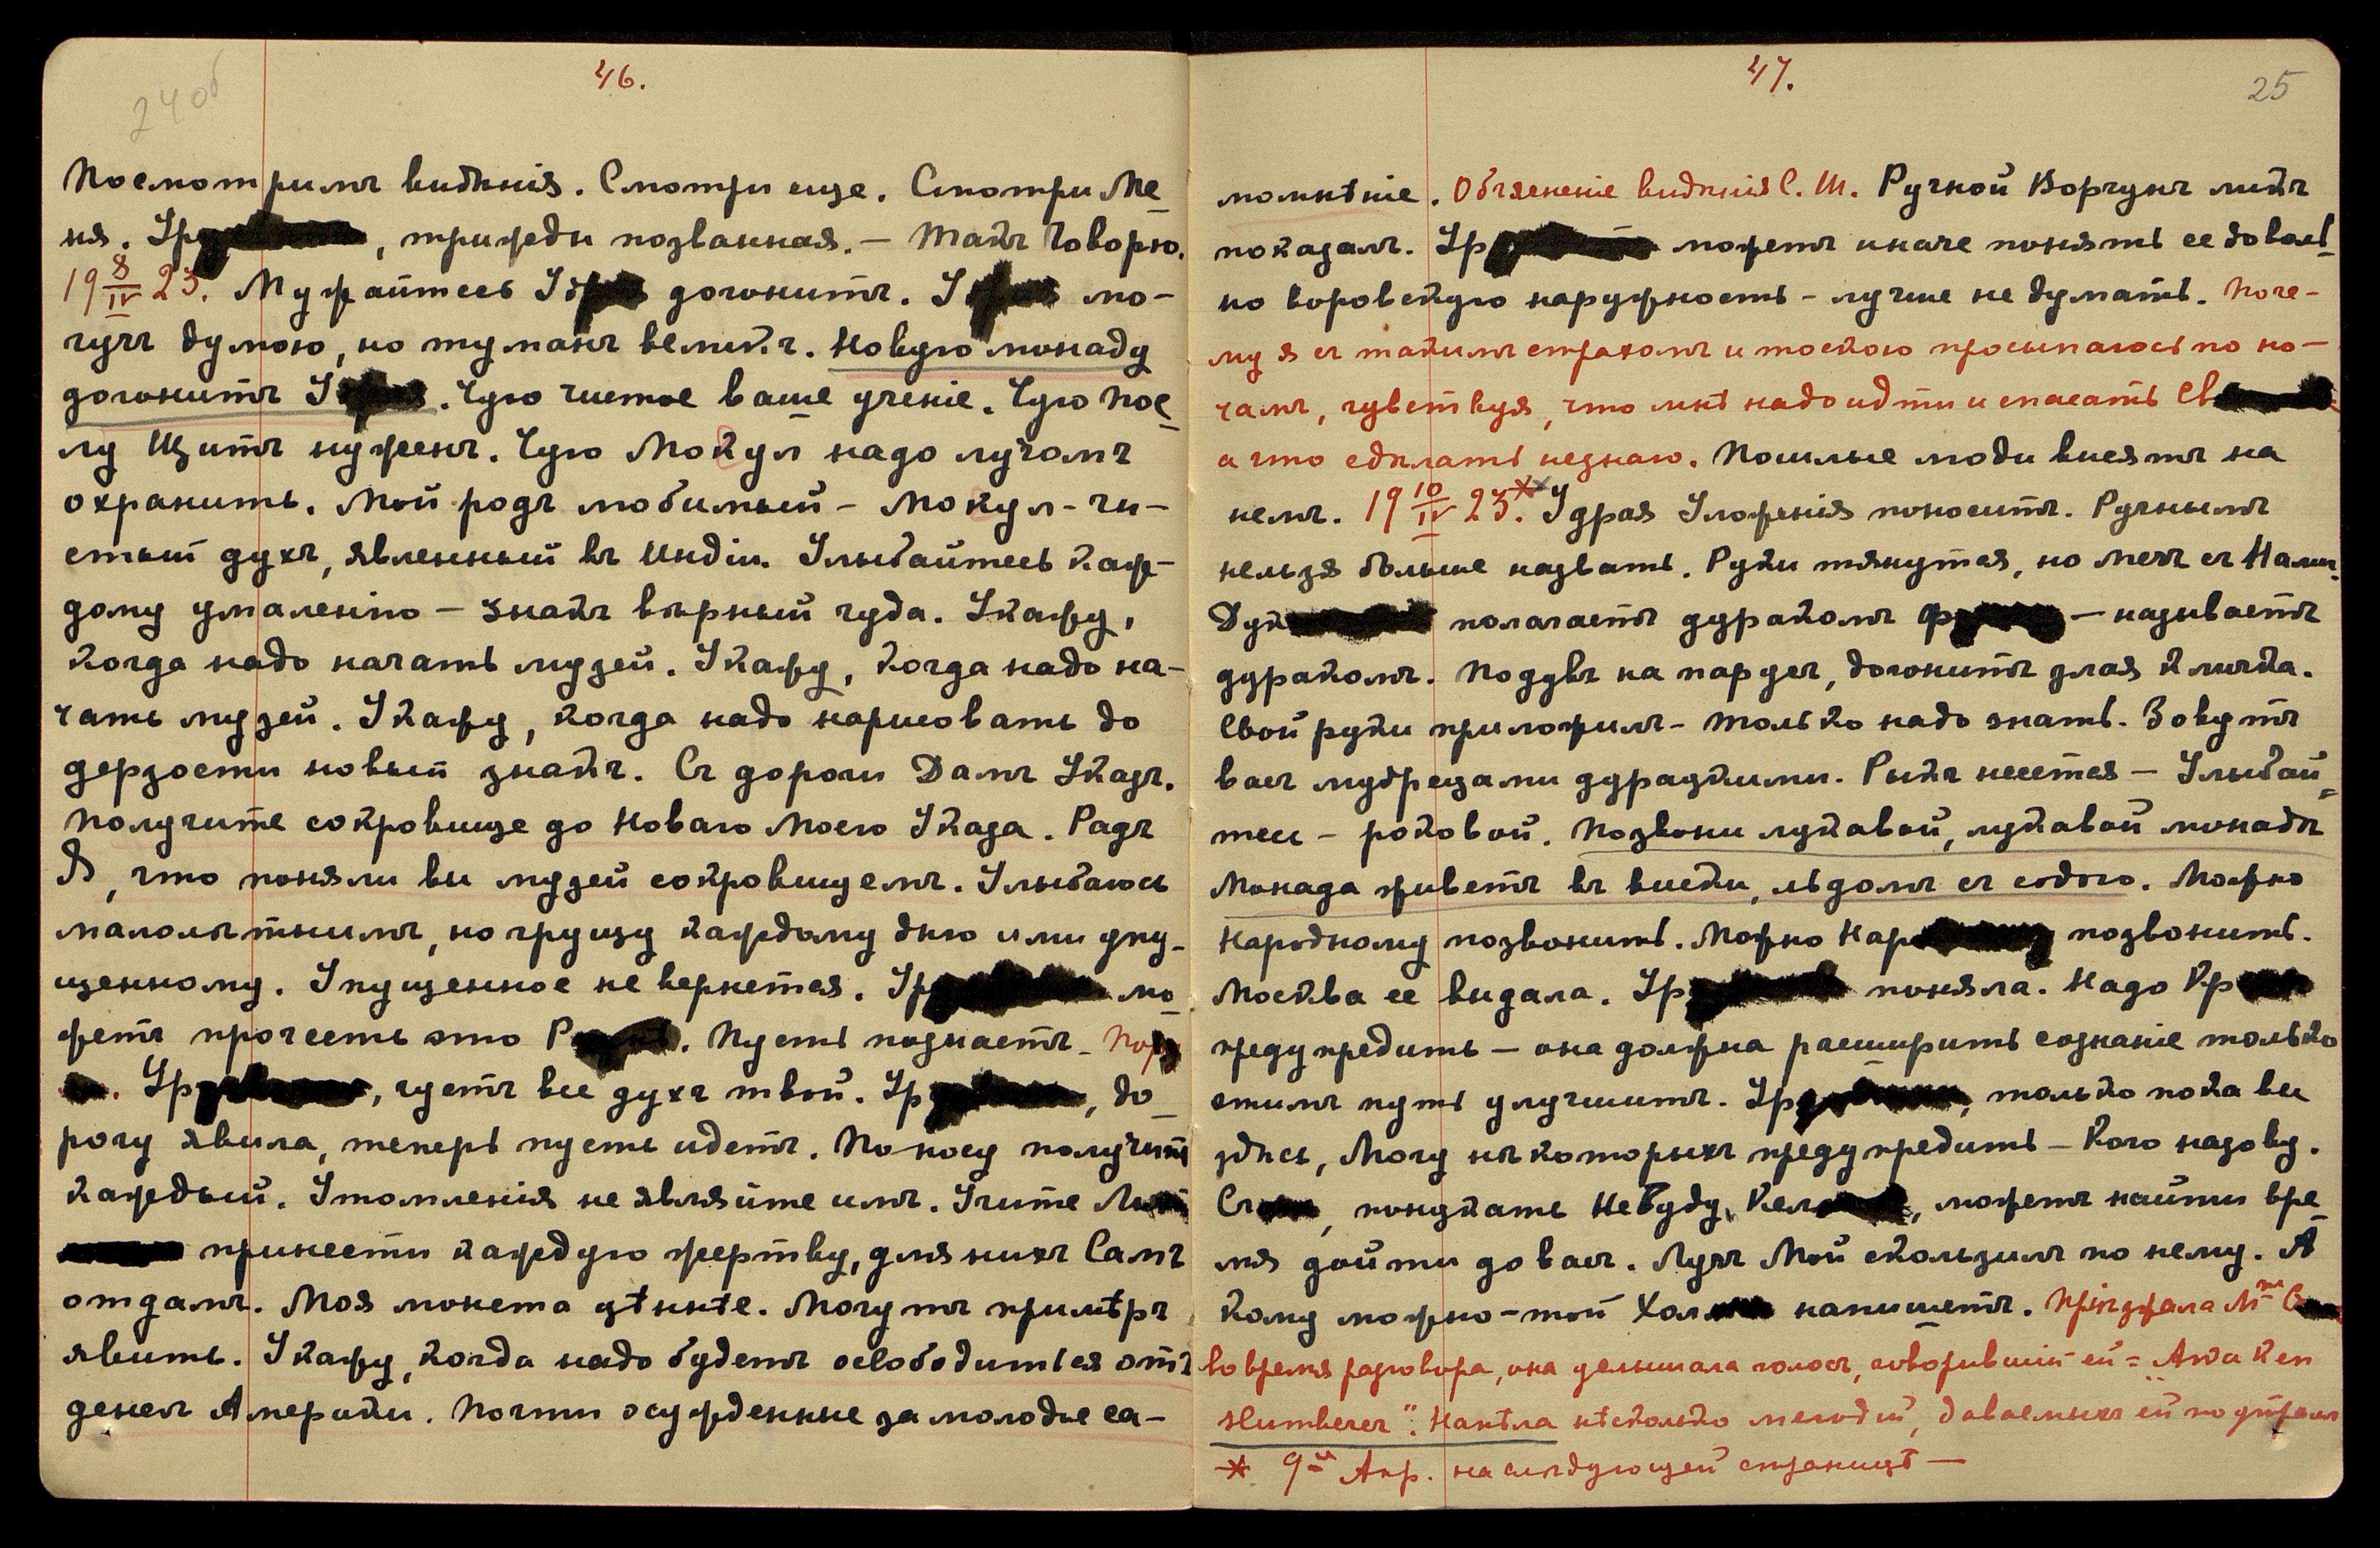 46.
24об
Посмотримъ видѣнія. Смотри еще. Смотри Ме-
ня. Ур , трижды позванная. — Такъ Говорю.
19 8/IV 23. Мужайтесь Удрая догонитъ. У мо-
гучъ думою, но туманъ великъ. Новую монаду
догонитъ У . Чую чистое ваше ученіе. Чую Пос-
лу Щитъ нуженъ. Чую Мокул надо лучомъ
охранить. Мой родъ любимый – Мокул – чи-
стый духъ, явленный въ Индіи. Улыбайтесь каж-
дому умаленію – знакъ вѣрный чуда. Укажу,
когда надо начать музей. Укажу, когда надо на-
чать музей. Укажу, когда надо нарисовать до
дерзости новый знакъ. Съ дороги Дамъ Указъ.
Получите сокровище до Новаго Моего Указа. Радъ
Я, что поняли вы музей сокровищемъ. Улыбаюсь
малолѣтнимъ, но грущу каждому дню ими упу-
щенному. Упущенное не вернется. Ур мо-
жетъ прочесть это Р . Пусть познаетъ. По
. Ур , чуетъ все духъ твой. Ур , до-
рогу явила, теперь пусть идетъ. По носу получитъ
каждый. Утомленія не являйте имъ. Учите
принести каждую жертву, для нихъ Самъ
отдамъ. Моя монета цѣннѣе. Могутъ примѣръ
явить. Укажу, когда надо будетъ освободиться отъ
денегъ Америки. Почти осужденные за молодые са-
47.
25
момнѣніе. Объясненіе видѣнія С. Ш. Ручной Ворчунъ ликъ
показалъ. Ур можетъ иначе понять ее доволь-
но воровскую наружность – лучше не думать. Поче-
му я съ такимъ страхомъ и тоскою просыпаюсь по но-
чамъ, чувствуя, что мнѣ надо идти и спасать Св
а что сдѣлать не знаю. Пошлые люди висятъ на
немъ. 19 10/IV 23.* Удрая Уложенія поноситъ. Ручнымъ
нельзя больше назвать. Руки тянутся, но мечъ съ Нами.
Дук полагаетъ дуракомъ Ф — называетъ
дуракомъ. Подувъ на парусъ, догонитъ злая кличка.
Свои руки приложилъ – только надо знать. Зовутъ
васъ мудрецами дурацкими. Рыкъ несется – Улыбай-
теся – роковой. Позвони лукавой, лукавой монадѣ
Монада живетъ въ виски, льдомъ съ содою. Можно
Народному позвонить. Можно Нар позвонить.
Москва ее видала. Ур поняла. Надо Кр
предупредить – она должна расширить сознаніе только
этимъ путь улучшитъ. Ур , только пока вы
здѣсь, Могу нѣкоторыхъ предупредить – Кого назову.
Ст , понуждать Не буду, Кел , можетъ найти вре-
мя дойти до васъ. Лучъ Мой скользилъ по нему. А
кому можно – той Хал напишетъ. Пріѣзжала Mme С
во время разговора, она услышала голосъ, говорившій ей = Awaken
slumberer". Напѣла нѣсколько мелодій, даваемыхъ ей по утрамъ
* 9й Апр. на слѣдующей страницѣ —